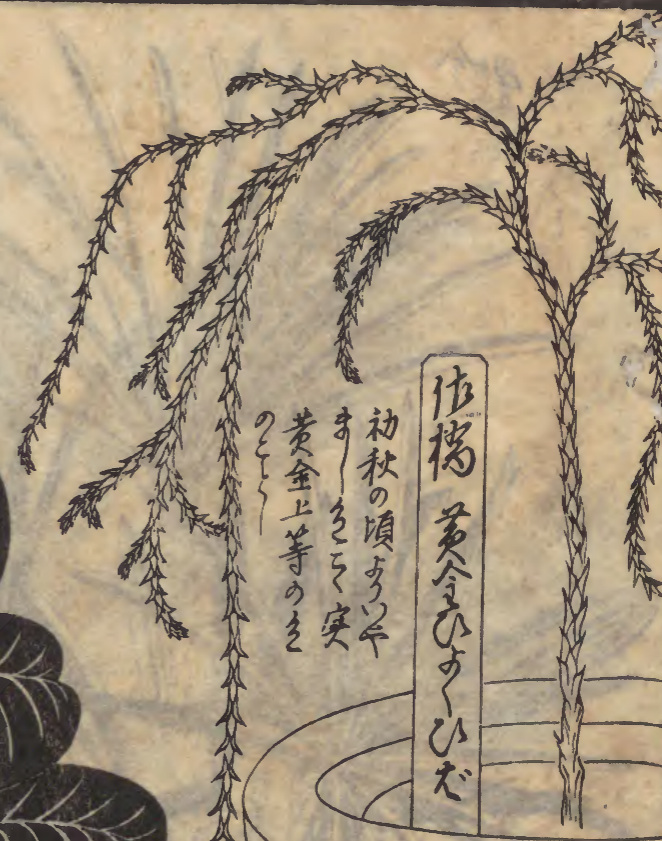 佐橋 黄金ひよくひば
初秋の頃よりいや
ましきこく実
黄金上等のき
のことし